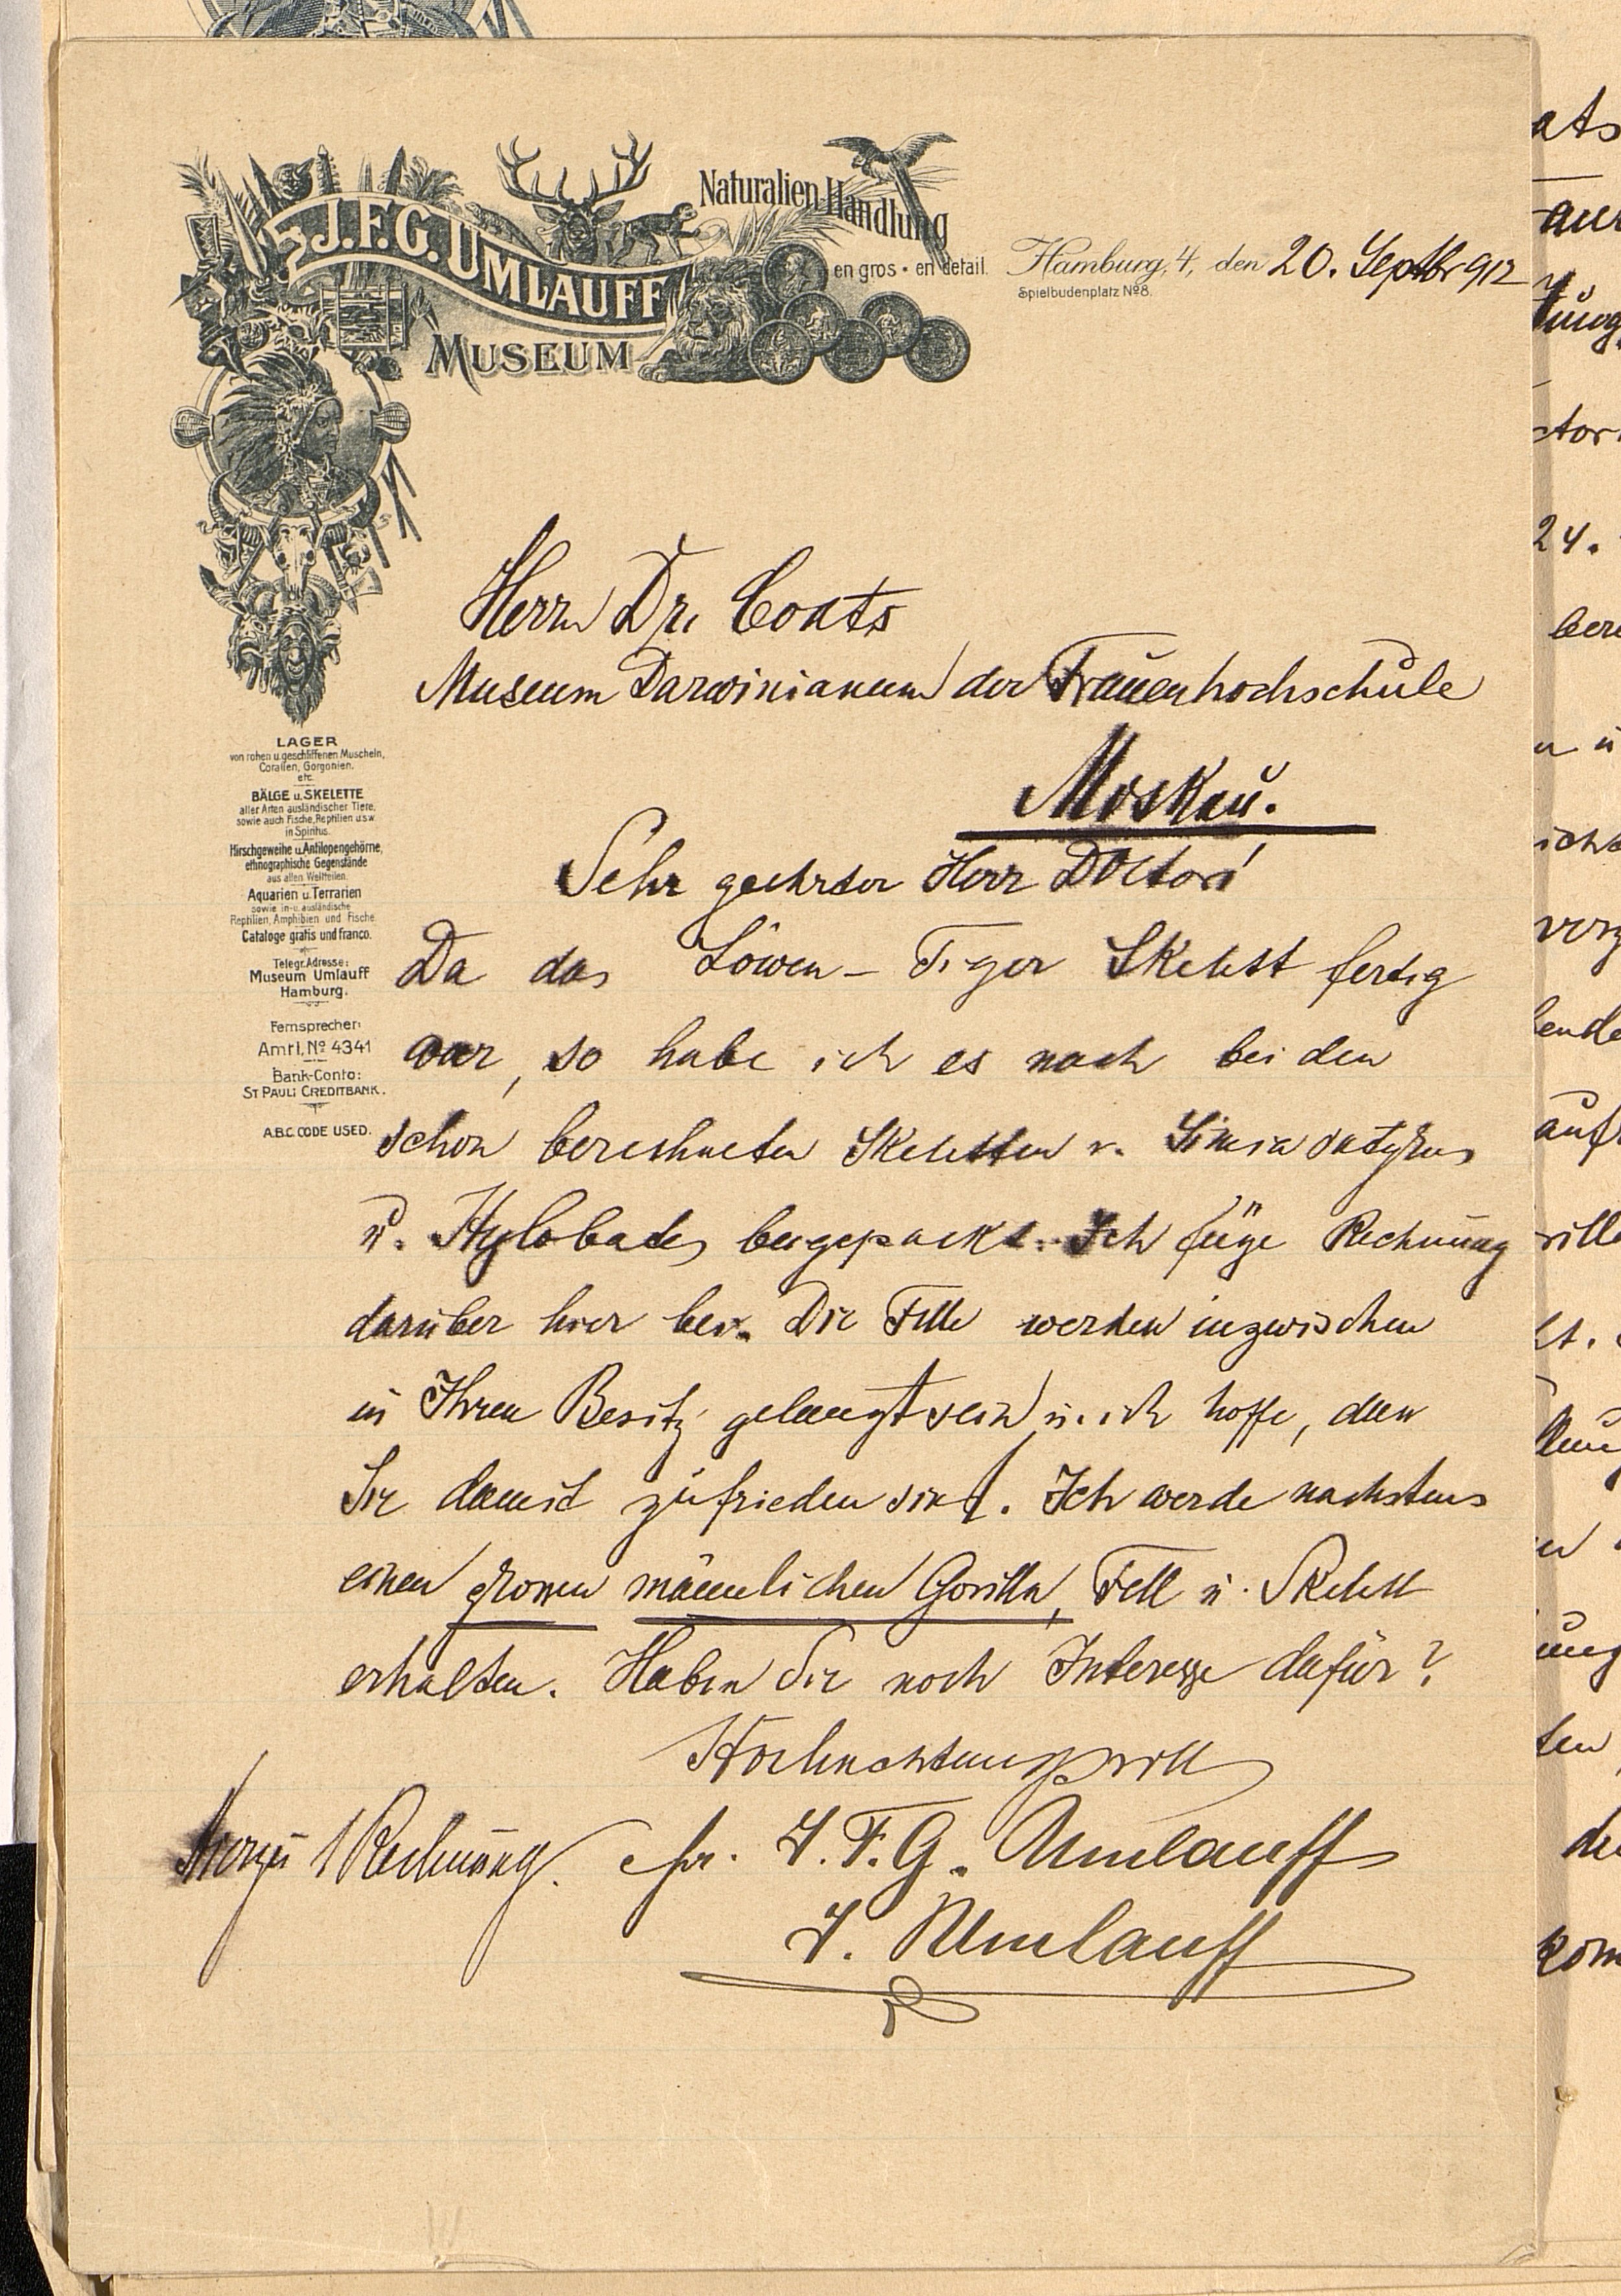 J.F.G. UMLAUFF
MUSEUM
Naturalien-Handlung
en gros • en detail.
Hamburg, 4, den 20. Septbr 912
Spielbudenplatz No 8.
LAGER
von rohen u. geschliffenen Muscheln,
Corallen, Gorgonien.
etc.
BÄLGE u. SKELETTE
aller Arten ausländischer Tiere,
sowie auch Fische, Reptilien u.s.w.
in Spiritus.
Hirschgeweihe u. Antilopengehörne,
ethnographische Gegenstände
aus allen Weltteilen.
Aquarien u. Terrarien
sowie in- u. ausländische
Reptilien, Amphibien und Fische
Cataloge gratis und franco.
Telegr. Adresse:
Museum Umlauff
Hamburg.
Fernsprecher:
Amt I, No 4341
Bank-Conto:
ST PAULI CREDITBANK.
A.B.C. CODE USED.
Herrn Dr. Coats
Museum Darwinianum der Frauenhochschule
Moskau.
Sehr geehrter Herr Doctor!
Da das Löwen-Tiger Skelett fertig
war, so habe ich es noch bei den
schon berechneten Skeletten v. Simia satyrus
u. Hylobates beigepackt. Ich füge Rechnung
darüber hier bei. Die Felle werden inzwischen
in Ihren Besitz gelangt sein u. ich hoffe, dass
Sie damit zufrieden sind. Ich werde nächstens
einen grossen männlichen Gorilla, Fell u. Skelett
erhalten. Haben Sie noch Interesse dafür?
Hochachtungsvoll
1 Rechnung. J. F. G. Umlauff
J. Umlauff